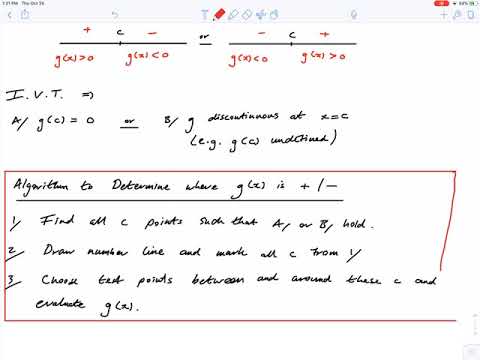 1:21 PM Thu Oct 26
+ c - - c +
or
g(x)>0 g(x)<0 g(x)<0 g(x)>0
I.V.T. ⇒
A/ g(c) = 0 or B/ g discontinuous at x=c
(e.g. g(c) undefined)
Algorithm to Determine where g(x) is + / -
1/ Find all c points such that A/ or B/ hold.
2/ Draw number line and mark all c from 1/
3/ Choose test points between and around these c and
evaluate g(x).